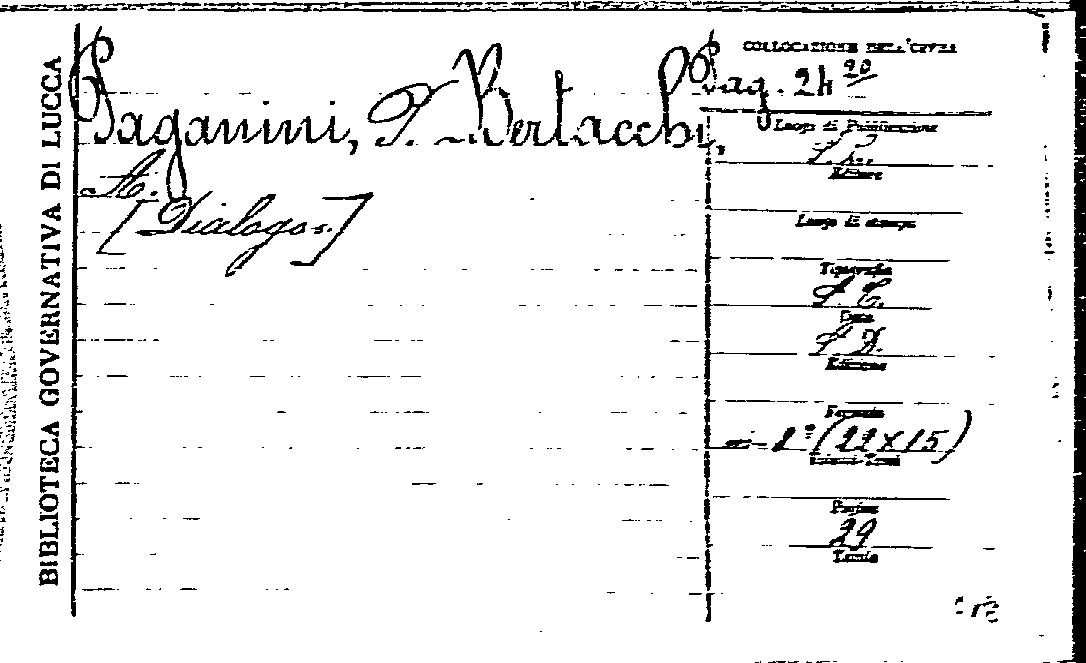 BIBLIOTECA GOVERNATIVA DI LUCCA
COLLOCAZIONE DELL'OPERA
Pag. 24 20
Paganini, P. Bertacchi,
A.
[Dialogo.]
Luogo di Pubblicazione
S. L.
Editore
Luogo di stampa
Tipografia
S. T.
Data
S. D.
Edizione
Formato
(22 x 15)
Pagine
29
Tavole